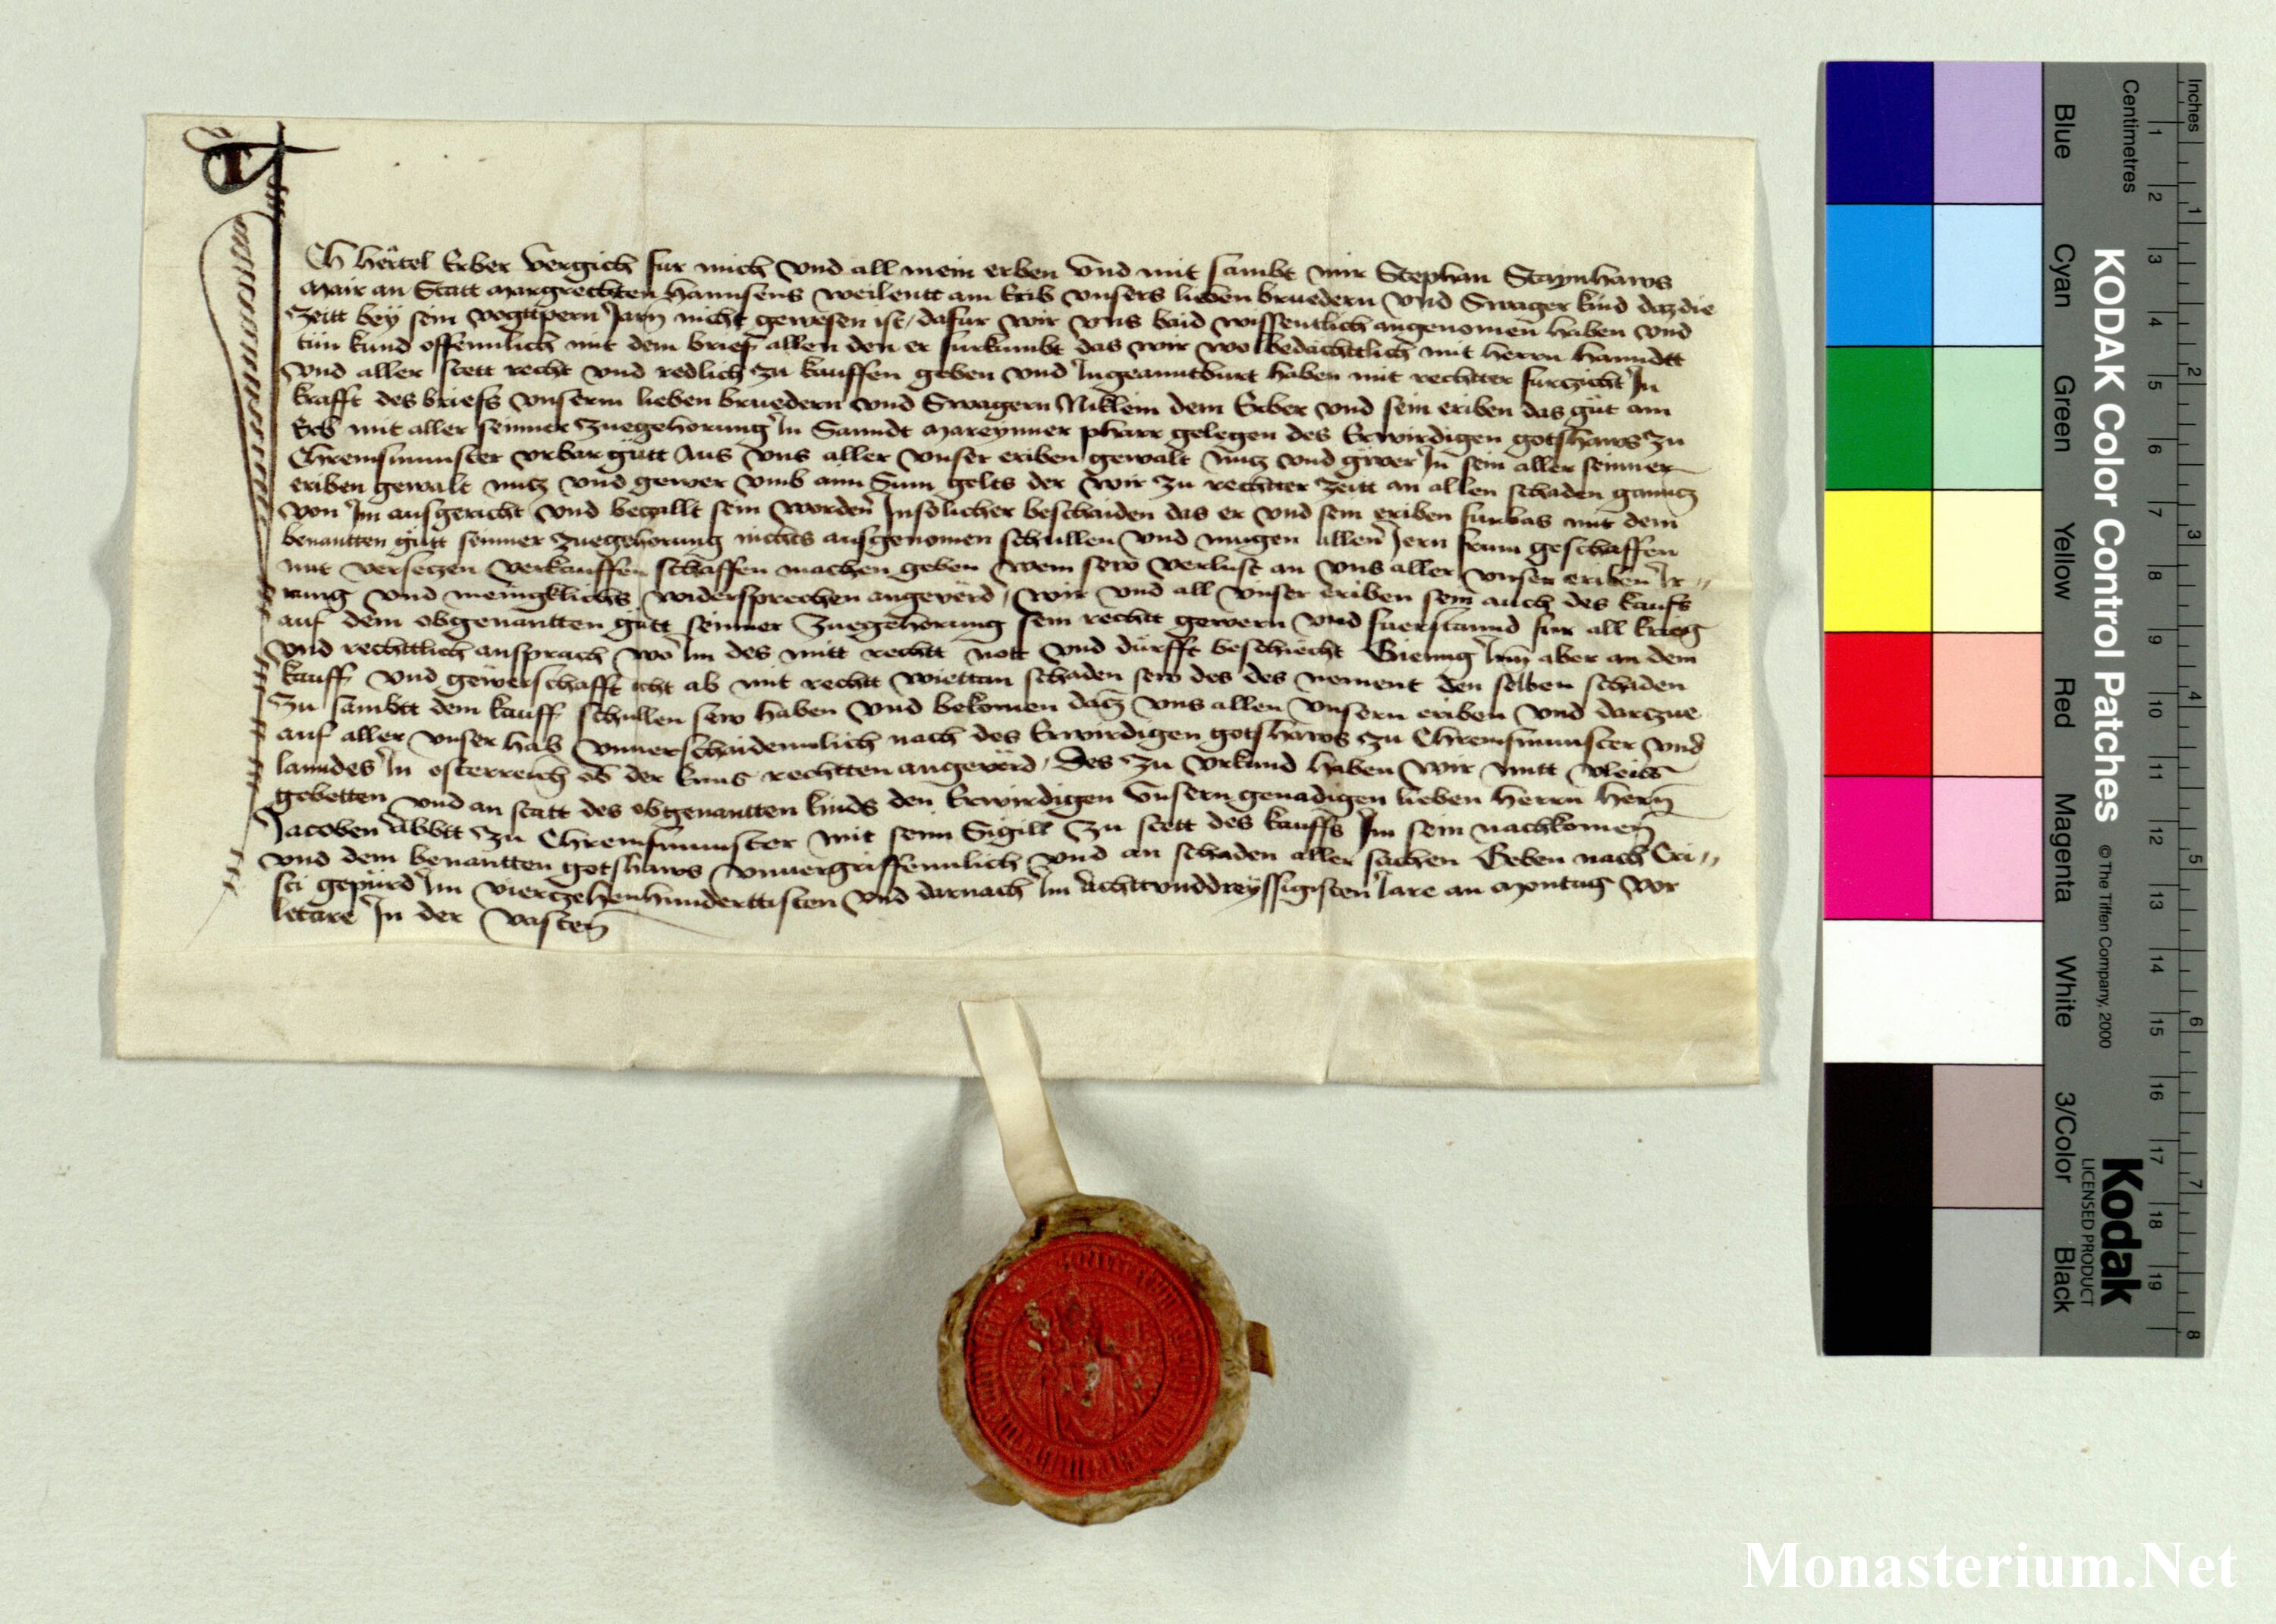 Ich Hertel Erber Vergich fur mich Vnd all mein erben Vnd mit sambt mir Stephan Staynhaws
Mair an Statt Margrechten Hannsens weilentt am Erib Vnsers lieben bruedern Vnd Swager kind daz die
Zeitt bey sein vogttpern Jarn nicht gewesen ist / dafur wir Vns baid wissentlich angenomen haben Vnd
tun kund offennlich mit dem brieff allen den er furkumbt das wir wolbedachttlich mit herrn hanndtt
Vnd aller stett recht Vnd redlich zu kauffen geben Vnd Ingeanntburt haben mit rechtter furzicht In
krafft des briefs Vnserm lieben bruedern Vnd Swagern Niklein dem Erber Vnd sein eriben das gut am
Erib mit aller seinner Zuegehorung In Sanndt Mareynner pharr gelegen des Erwirdigen gotshaws Zu
Chremsmunster Vrbar gutt Aus Vns aller Vnser eriben gewalt Nutz Vnd gwer In sein aller seinner
eriben gewalt nutz Vnd gewer Vmb ainn Sum gelts der Wir Zu rechtter Zeitt an allen schaden ganntz
Von Im ausgericht Vnd beczallt sein Worden Insolicher beschaiden das er Vnd sein eriben furbas mit dem
benantten gutt seinner Zuegehorung nichts ausgenomen schullen Vnd mugen allen Jern frum geschaffen
mit Versetzen Verkauffen schaffen machen geben Wem sew Verlust an Vns aller Vnser eriben Ir=
rung Vnd menigklichs widersprechen angeverd / Wir Vnd all Vnser eriben sein auch des kaufs
auf dem obgenantten gutt seinner Zuegehorung sein rechtt gewern Vnd fuerstannd fur all krieg
Vnd rechttlich ansprach wo Im des mitt rechtt nott Vnd durfft beschiecht Gieng Im aber an dem
kauff Vnd gewerschafft icht ab mit rechtt wiettan schaden sew des des nement den selben schaden
Zu sambtt dem kauff schullen sew haben Vnd bekomen datz Vns allen Vnsern eriben Vnd darczue
auf aller Vnser hab Vnuerschaidennlich nach des Erwirdigen gotshaws zu Chremsmunster Vnd
lanndes In osterreich ob der Enns rechtten angeverd / Des Zu Vrkund haben Wir mitt Vleiss
gebetten Vnd an statt des obgenantten kinds den Erwirdigen Vnsern genadigen lieben herrn hern
Jacoben Abbtt Zu Chremsmunster mit seim Sigill Zu stett des kauffs Im sein nachkomen
Vnd dem benantten gotshaws Vnuergriffennlich Vnd an schaden aller sachen Geben nach Cri=
sti gepurd Im Vierczehenhunderttisten Vnd darnach Im Achttvnddreyssigisten Jare an Montag Vor
letare In der Vasten
Inches
Centimetres
KODAK Color Control Patches
© The Tiffen Company, 2000
Kodak
LICENSED PRODUCT
Blue
Cyan
Green
Yellow
Red
Magenta
White
3/Color
Black
1 2 3 4 5 6 7 8 9 10 11 12 13 14 15 16 17 18 19
1 2 3 4 5 6 7 8
Monasterium.Net